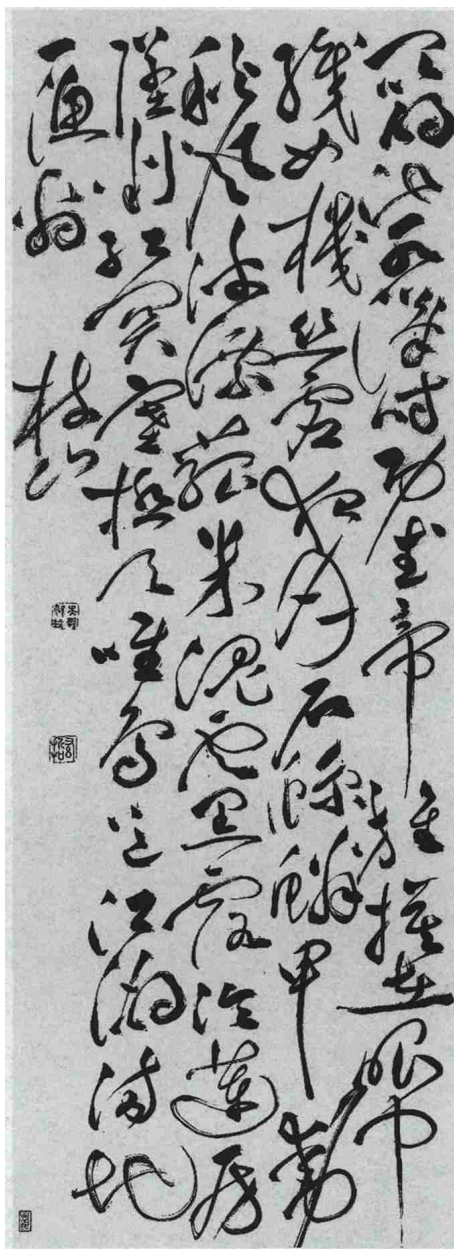 昆明池水漢時功武帝旌旗在眼中
織女機絲虛夜月石鯨鱗甲動
秋風波漂菰米沉雲黑露冷蓮房
墜粉紅關塞極天唯鳥道江湖滿地
一漁翁 枝山